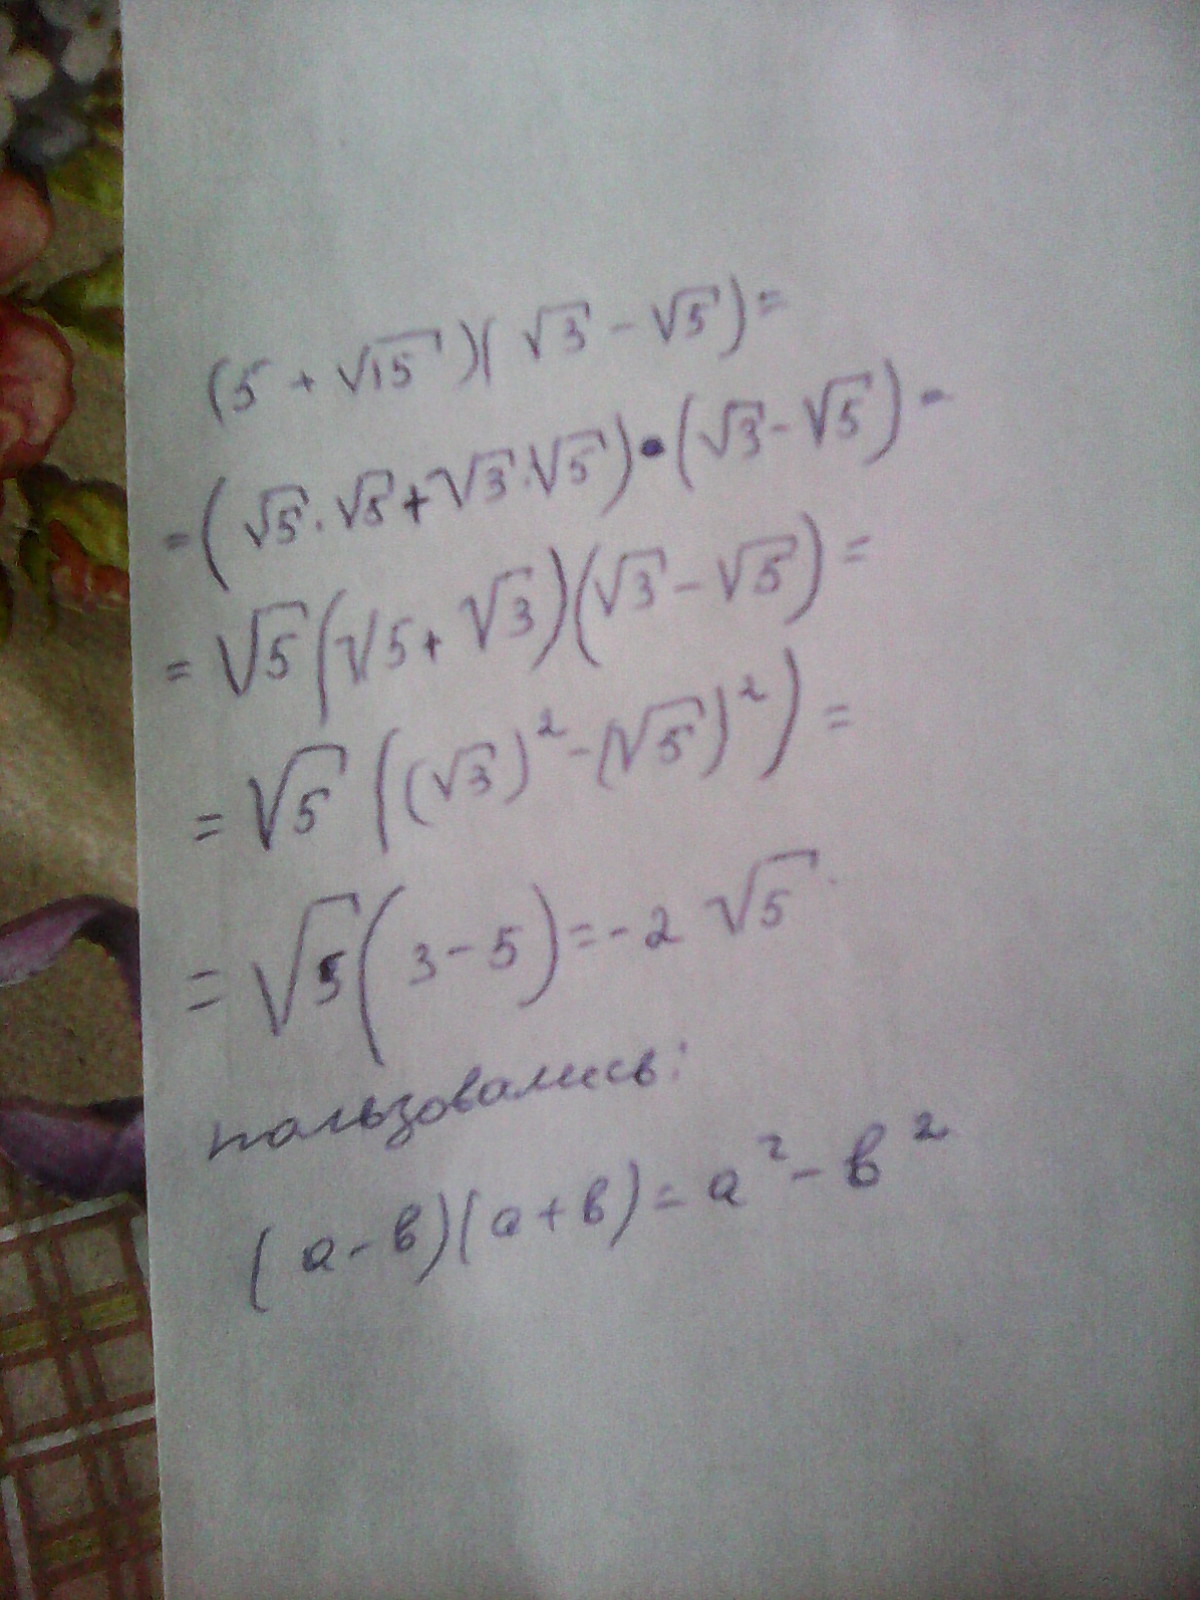 (5 + √15)(√3 - √5) =
= (√5 · √5 + √3 · √5) • (√3 - √5) =
= √5 (√5 + √3)(√3 - √5) =
= √5 ((√3)² - (√5)²) =
= √5 (3 - 5) = -2 √5.
пользовались:
(а - в)(а + в) = а² - в²